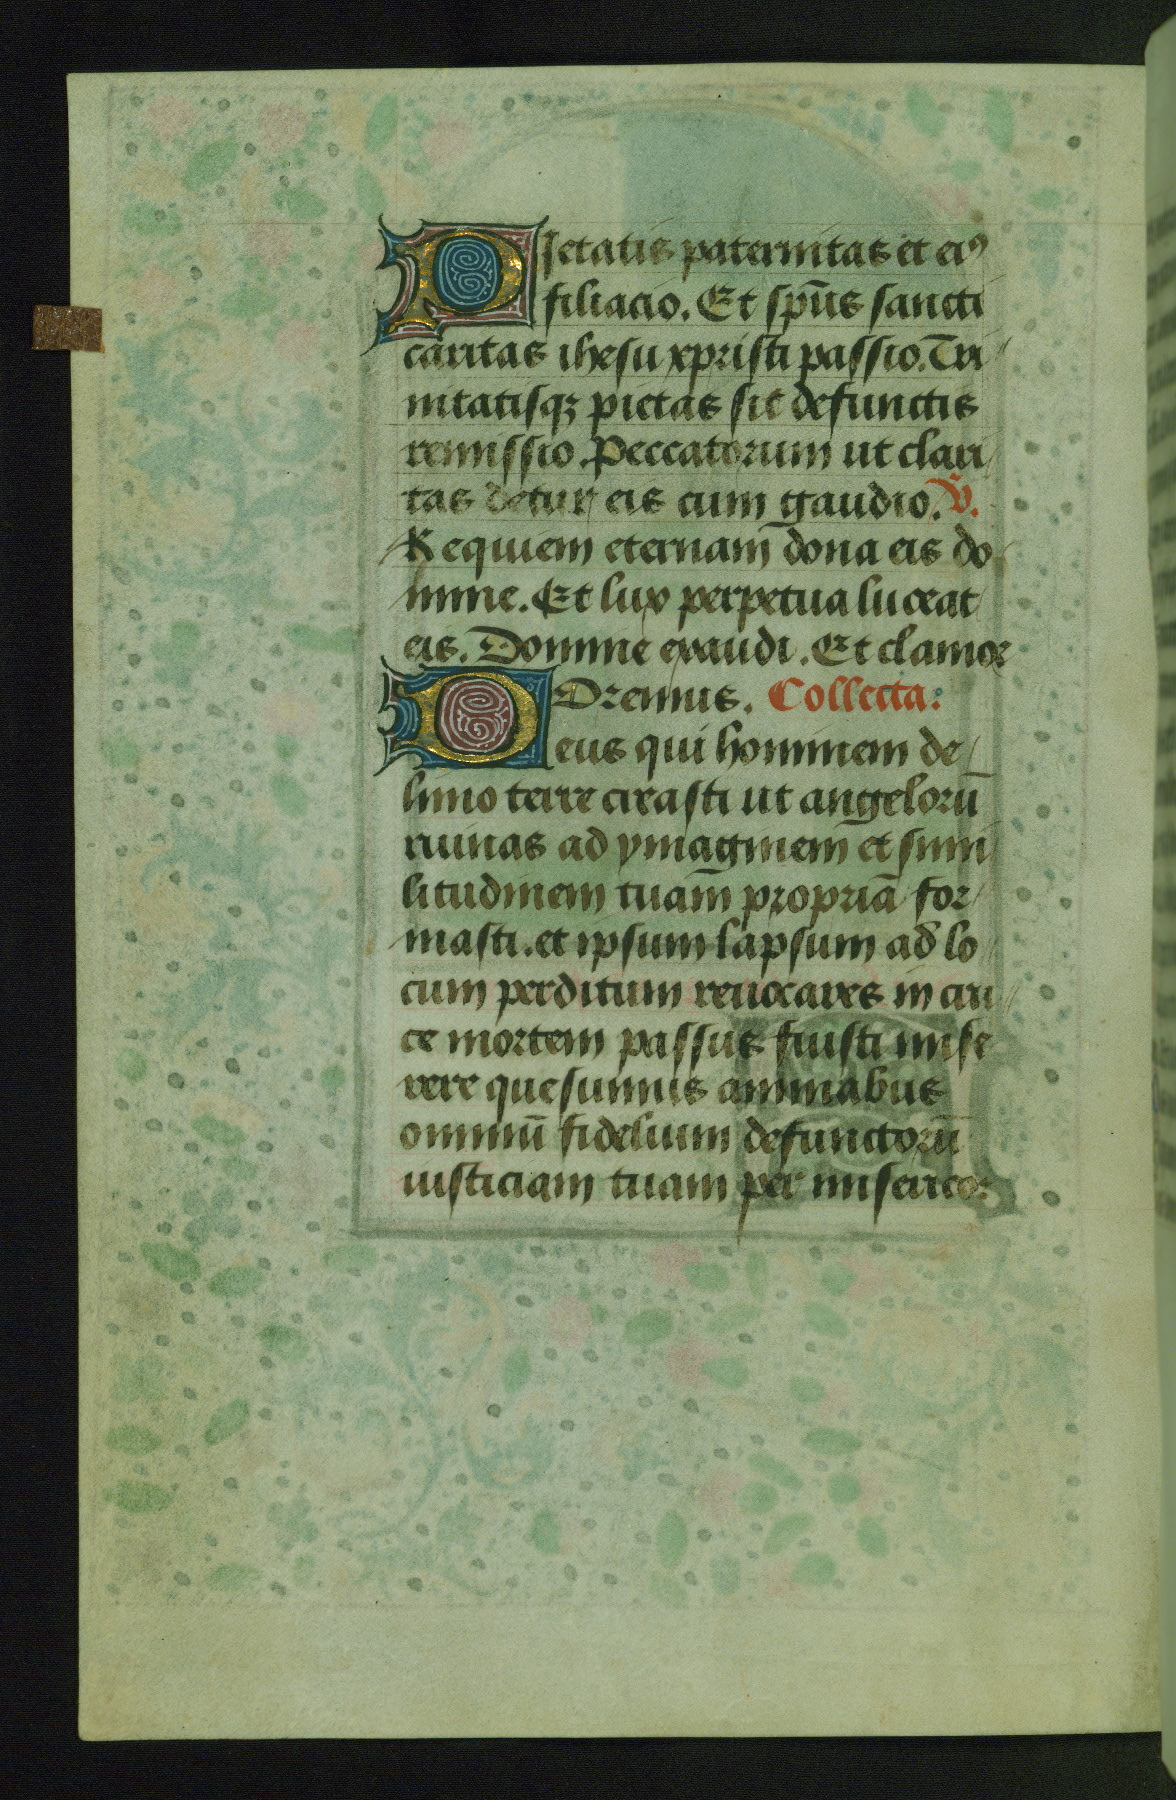 Pietatis paternitas et eiꝰ
filiacio. Et sp̄us sancti
caritas ihesu xpristi passio. Tri
nitatisqꝫ pietas sit defunctis
remissio. Peccatorum ut clari
tas detur eis cum gaudio. V̄.
Requiem eternam dona eis do
mine. Et lux perpetua luceat
eis. Domine exaudi. Et clamor
Oremus. Collecta:
Deus qui hominem de
limo terre creasti ut angelorū
ruinas ad ymaginem et simi
litudinem tuam propriā for
masti. et ipsum lapsum ad lo
cum perditum reuocares in cru
ce mortem passus fuisti mise
rere quesumus animabus
omniū fidelium defunctorū
iusticiam tuam per misericor